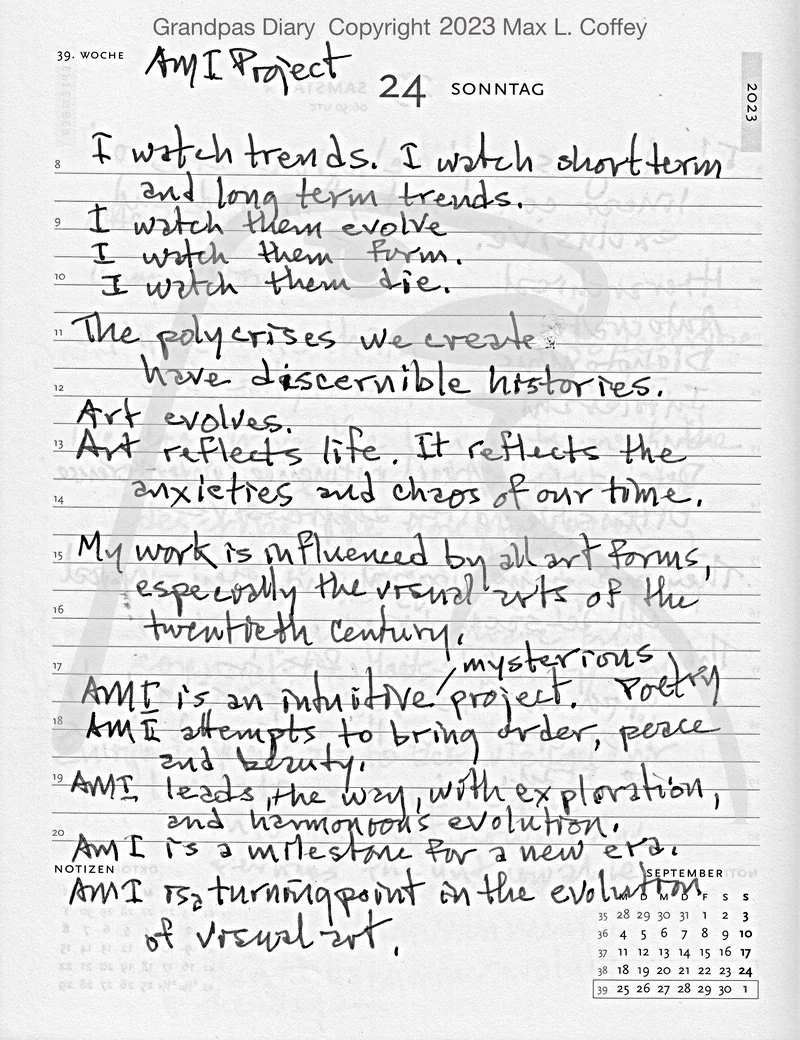 Grandpas Diary Copyright 2023 Max L. Coffey
39. WOCHE
AMI Project
24 SONNTAG
2023
8 I watch trends. I watch short term
and long term trends.
9 I watch them evolve
I watch them form.
10 I watch them die.
11 The polycrises we create
have discernible histories.
12
Art evolves.
13 Art reflects life. It reflects the
14 anxieties and chaos of our time.
15 My work is influenced by all art forms,
especially the visual arts of the
16 twentieth century.
17 mysterious
AMI is an intuitive / project. Poetry
18 AMI attempts to bring order, peace
and beauty.
19 AMI leads, the way, with exploration,
and harmonous evolution.
20 AMI is a milestone for a new era.
NOTIZEN
AMI is a turning point in the evolution
of visual art.
SEPTEMBER
M D M D F S S
35 28 29 30 31 1 2 3
36 4 5 6 7 8 9 10
37 11 12 13 14 15 16 17
38 18 19 20 21 22 23 24
39 25 26 27 28 29 30 1